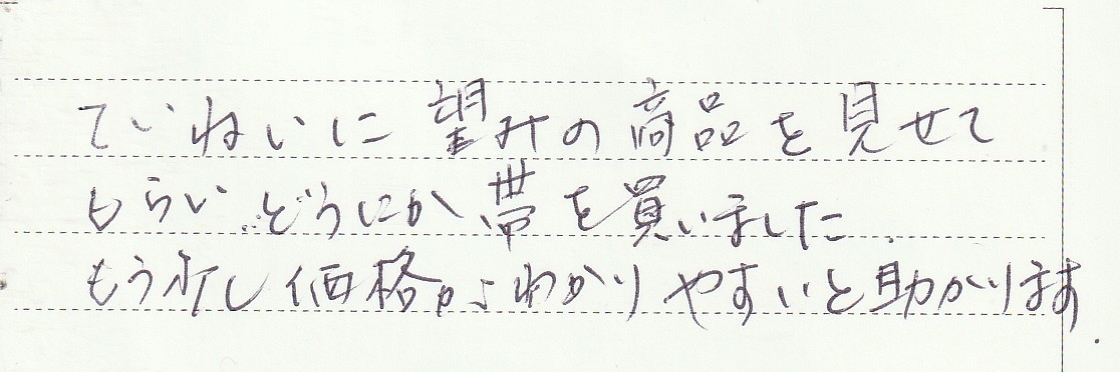 ていねいに望みの商品を見せて
もらい、どうにか帯を買いました。
もう少し価格がわかりやすいと助かります.